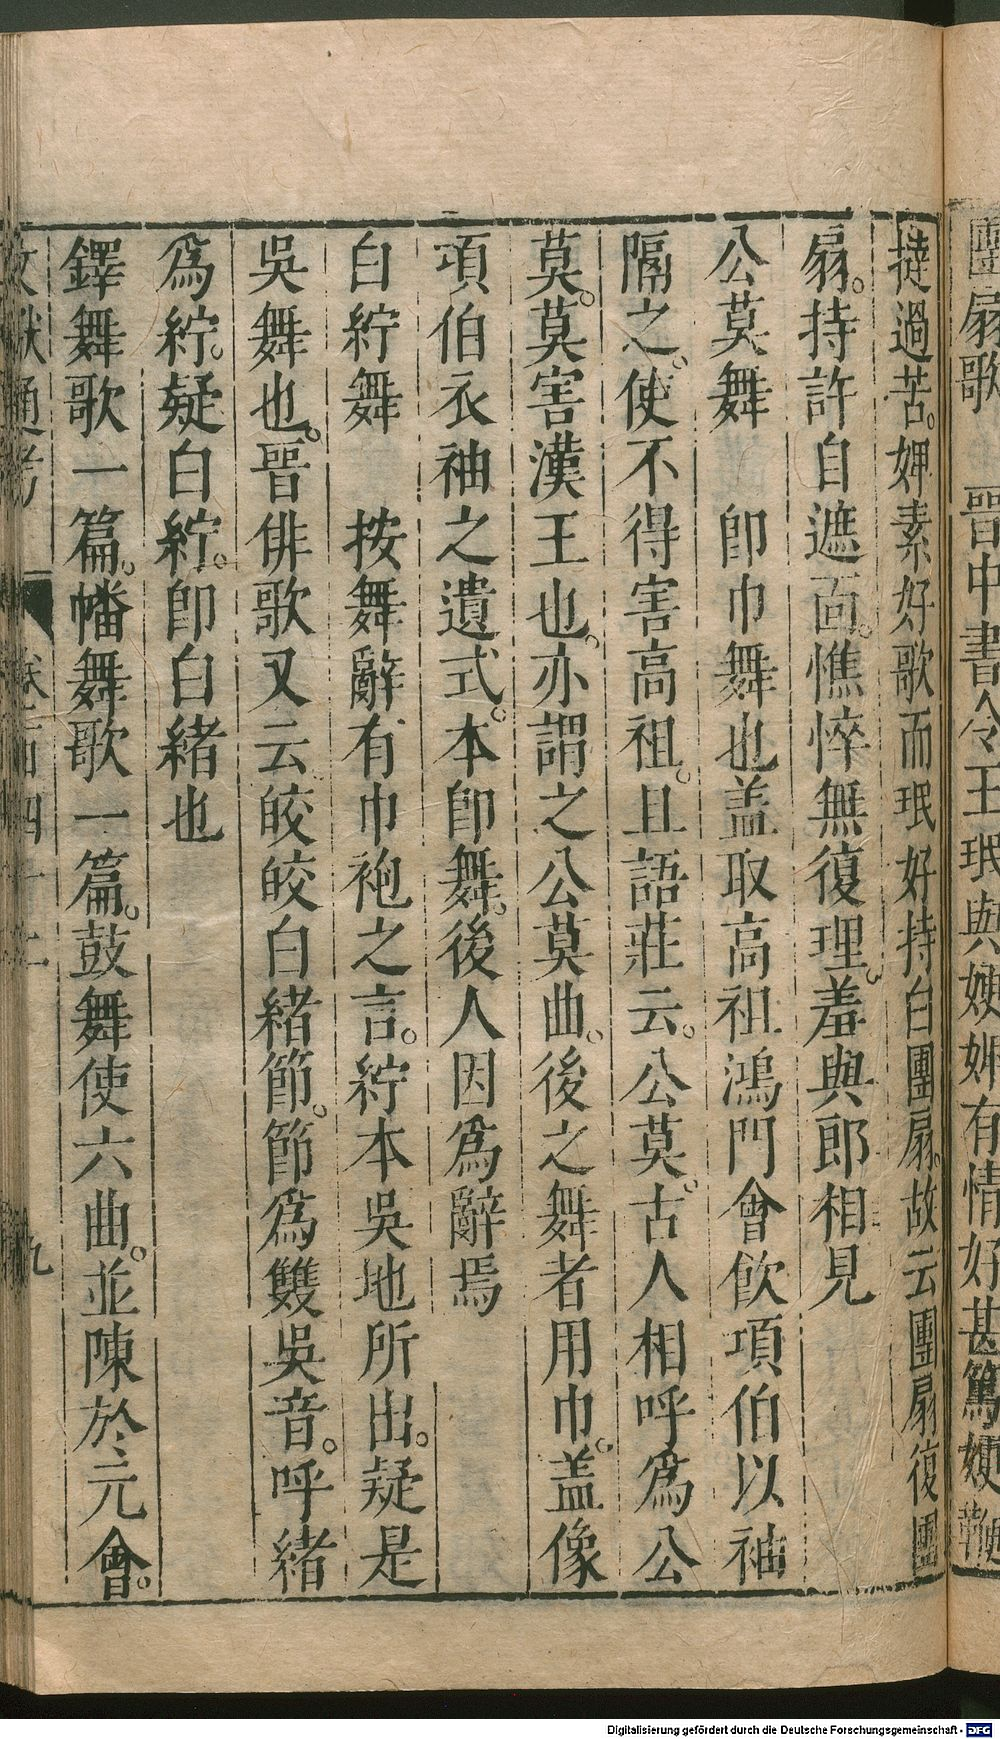 團扇歌　晋中書令王珉與嫂婢有情好甚篤嫂鞭
撻過苦。婢素好歌而珉好持白團扇。故云團扇復團
扇。持許自遮面。憔悴無復理。羞與郎相見
公莫舞　卽巾舞也盖取高祖鴻門會飮項伯以袖
隔之。使不得害高祖。且語莊云。公莫。古人相呼爲公
莫。莫害漢王也。亦謂之公莫曲。後之舞者用巾。盖像
項伯衣袖之遺式。本卽舞。後人因爲辭焉
白紵舞　按舞辭有巾袍之言。紵本吳地所出。疑是
吳舞也。晋俳歌又云皎皎白緒節。節爲雙吳音。呼緒
爲紵。疑白紵。卽白緒也
鐸舞歌一篇。幡舞歌一篇。鼓舞使六曲。並陳於元會。
文獻通考　卷百四十二　九
Digitalisierung gefördert durch die Deutsche Forschungsgemeinschaft - DFG